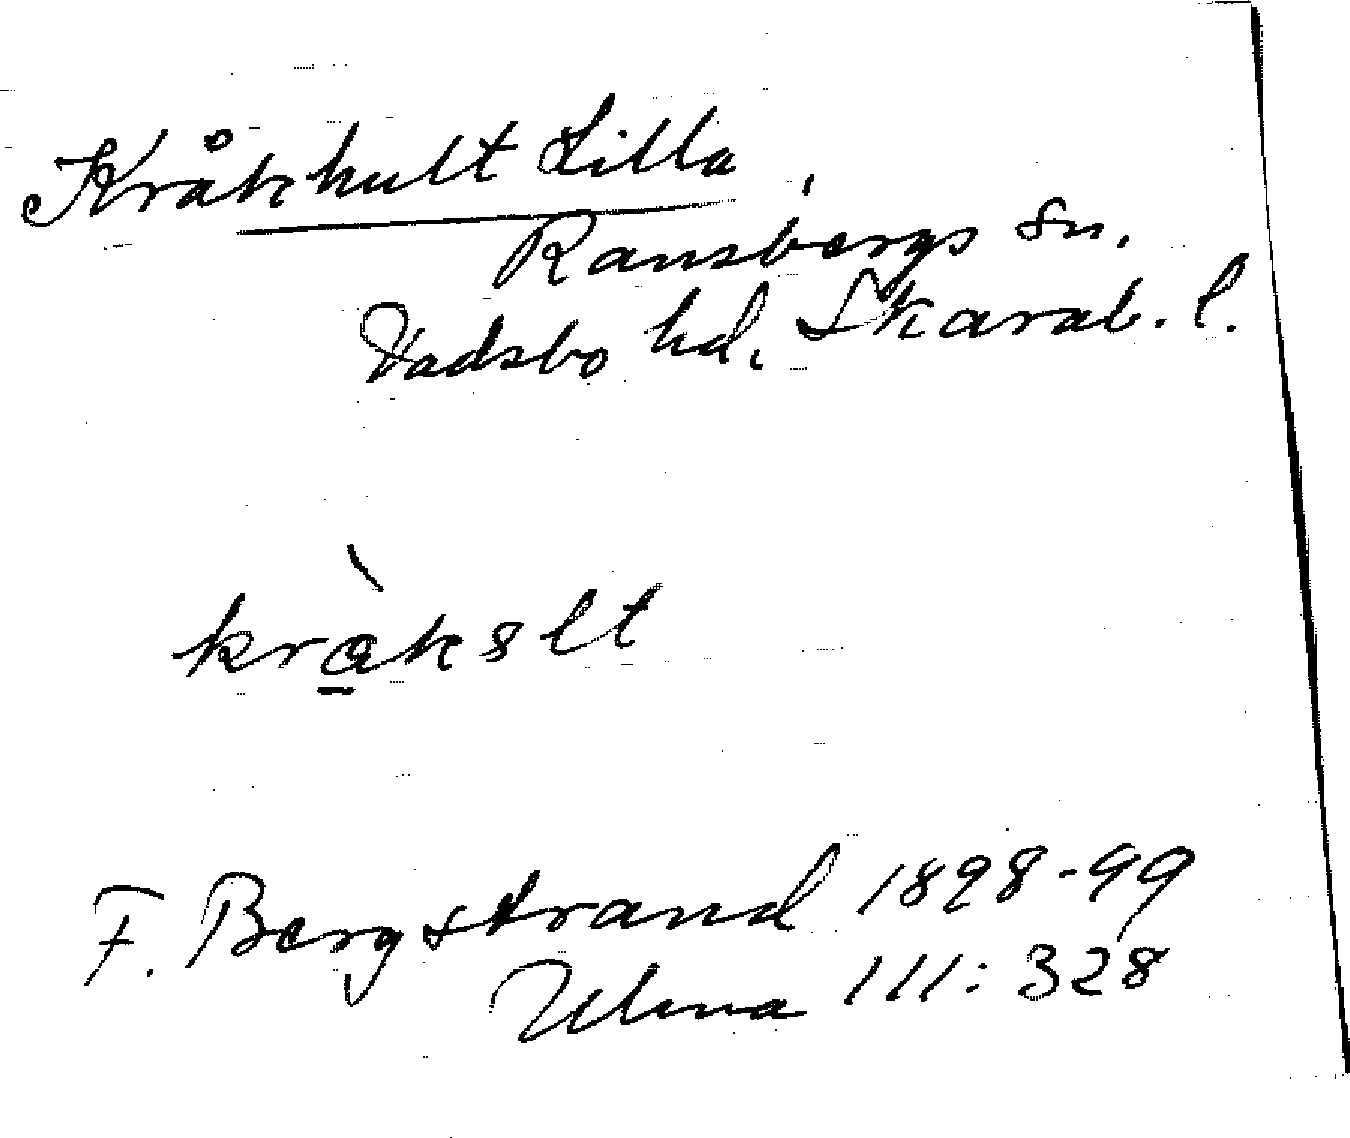 Kråkhult Lilla,
Ransbergs sn.
Vadsbo hd. Skarab. l.
krà̱kslt
F. Bergstrand 1898-99
Ulma 111: 328